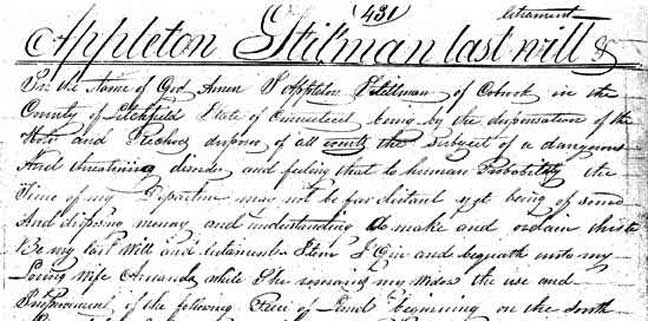 (431)
Appleton Stilman last will & testament
In the Name of God Amen I Appleton Stillman of Cobrook in the
County of Litchfield State of Connecticut being by the dispensation of the
Holy and disposer of all events the Subject of a dangerous
And threatining disorder and feeling that to human Probability the
Time of my Departure may not be far distant yet being of sound
And disposing memory and understanding do make and ordain this to
Be my last Will and testament Item I Give and bequeath unto my
Loving wife Amanda while She remains my Widow the use and
Improvement of the following Piece of Land beginning on the South